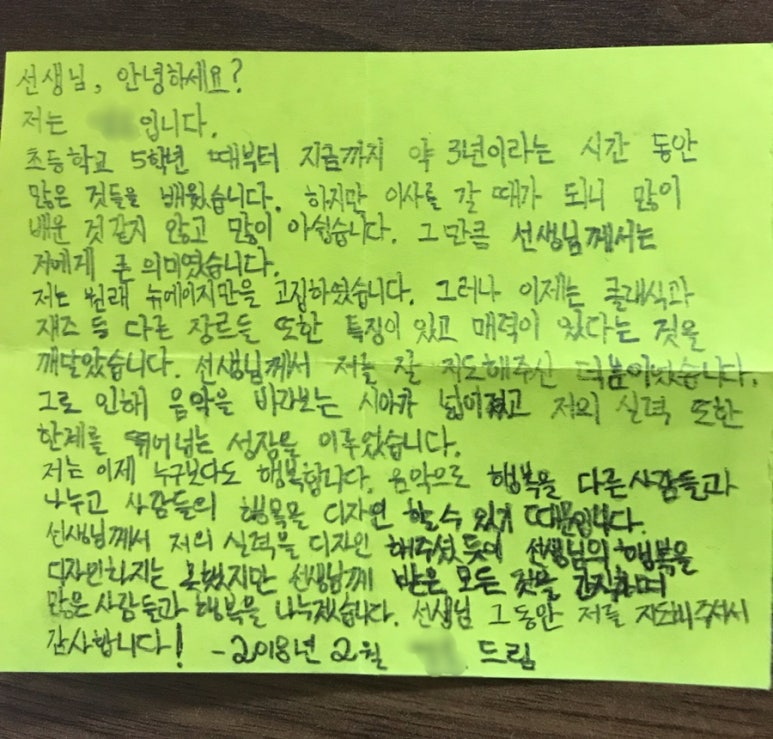 선생님, 안녕하세요?
저는 입니다.
초등학교 5학년 때부터 지금까지 약 3년이라는 시간 동안
많은 것들을 배웠습니다. 하지만 이사를 갈 때가 되니 많이
배운 것같지 않고 많이 아쉽습니다. 그만큼 선생님께서는
저에게 큰 의미였습니다.
저는 원래 뉴에이지만을 고집하였습니다. 그러나 이제는 클래식과
재즈 등 다른 장르들 또한 특징이 있고 매력이 있다는 것을
깨달았습니다. 선생님께서 저를 잘 지도해주신 덕분이었습니다.
그로 인해 음악을 바라보는 시야가 넓어졌고 저의 실력 또한
한계를 뛰어넘는 성장을 이루었습니다.
저는 이제 누구보다도 행복합니다. 음악으로 행복을 다른사람들과
나누고 사람들의 행복을 디자인 할 수 있기 때문입니다.
선생님께서 저의 실력을 디자인 해주셨듯이 선생님의 행복을
디자인하지는 못했지만 선생님께 받은 모든 것을 간직하며
많은 사람들과 행복을 나누겠습니다. 선생님 그동안 저를 지도해주셔서
감사합니다! -2018년 2월 드림